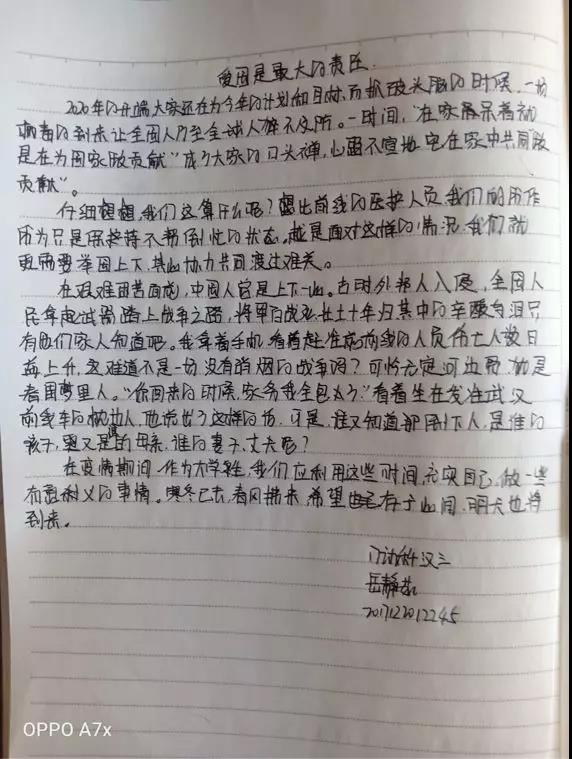 爱国是最大的责任
2020年的开端大家还在为今年的计划和目标而抓破头脑的时候,一场
病毒的到来让全国人乃至全球人猝不及防。一时间,"在家躺呆着就
是在为国家做贡献"成了大家的口头禅,心照不宣地宅在家中共同做
贡献"。
仔细想想,我们这算什么呢?想比前线的医护人员,我们的所作
所为只是保持着不帮倒忙的状态。越是面对这样的情况,我们就
更需要举国上下,其心协力共同渡过难关。
在艰难困苦面前,中国人总是上下一心。古时外邦人入侵,全国人
民拿起武器踏上战争之路,将军百战死,壮士十年归其中的辛酸与泪只
有他们家人知道吧。我拿着手机,看着赶往前线的人员伤亡人数日
益上升,这难道不是一场没有硝烟的战争吗?可怜无定河边骨,犹是
春闺梦里人。"你回来的时候,家务我全包了!"看着坐在发往武汉
前线车的枕边人,他说出了这样的话,可是,谁又知道那倒下人,是谁的
孩子,又是谁的母亲,谁的妻子、丈夫呢?
在疫情期间,作为大学生,我们应利用这些时间,充实自己,做一些
有意义的事情。寒冬已去,春风拂来,希望存于心间,明天也将
到来。
岳静
201712012245
OPPO A7x